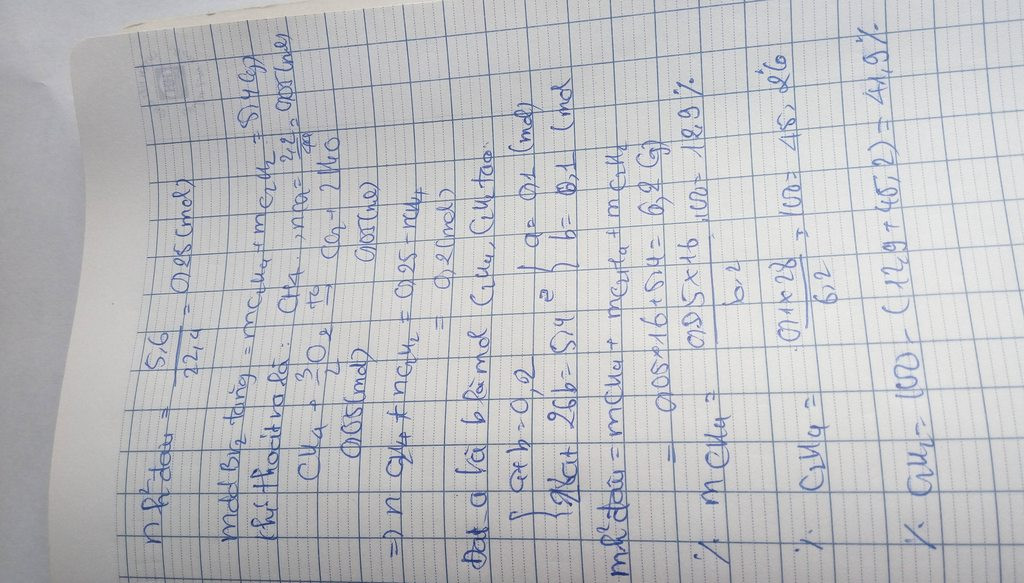 n h² đầu = 5,6/22,4 = 0,25 (mol)
mdd Br₂ tăng = mC₂H₄ + mC₂H₂ = 5,4 (g)
Khí thoát ra là: CH₄, nCH₄ = 0,05 (mol)
CH₄ + 3/2 O₂ t° CO₂ + 2H₂O
0,05 (mol) 0,05 (mol)
=) n C₂H₄ + nC₂H₂ = 0,25 - nCH₄
= 0,2 (mol)
Đặt a là b là mol C₂H₄, C₂H₂
{ a + b = 0,2
{ 28a + 26b = 5,4 { a = 0,1 (mol)
{ b = 0,1 (mol
mh² đầu = mCH₄ + mC₂H₄ + mC₂H₂
= 0,05 × 16 + 5,4 = 6,2 (g)
% mCH₄ = 0,05 × 16/6,2 . 100 = 12,9%
% C₂H₄ = 0,1 × 28/6,2 . 100 = 45,2%
% C₂H₂ = 100 - (12,9 + 45,2) = 41,9%